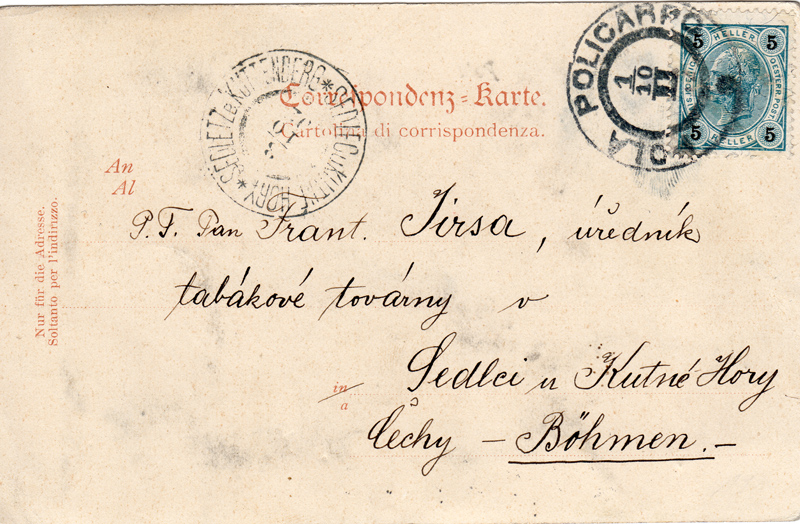 POLA POLICARPO
1
10
11
5 HELLER 5
5 HELLER 5
OESTERR. POST
Correspondenz-Karte.
Cartolina di corrispondenza.
*SEDLETZ b/KUTTENBERG*SEDLEC u KUTNÉ HORY
An
Al
P. T. Pan Frant. Jirsa, úředník
tabákové továrny v
in
a
Sedlci u Kutné Hory
Čechy – Böhmen.–
Nur für die Adresse.
Soltanto per l'indirizzo.